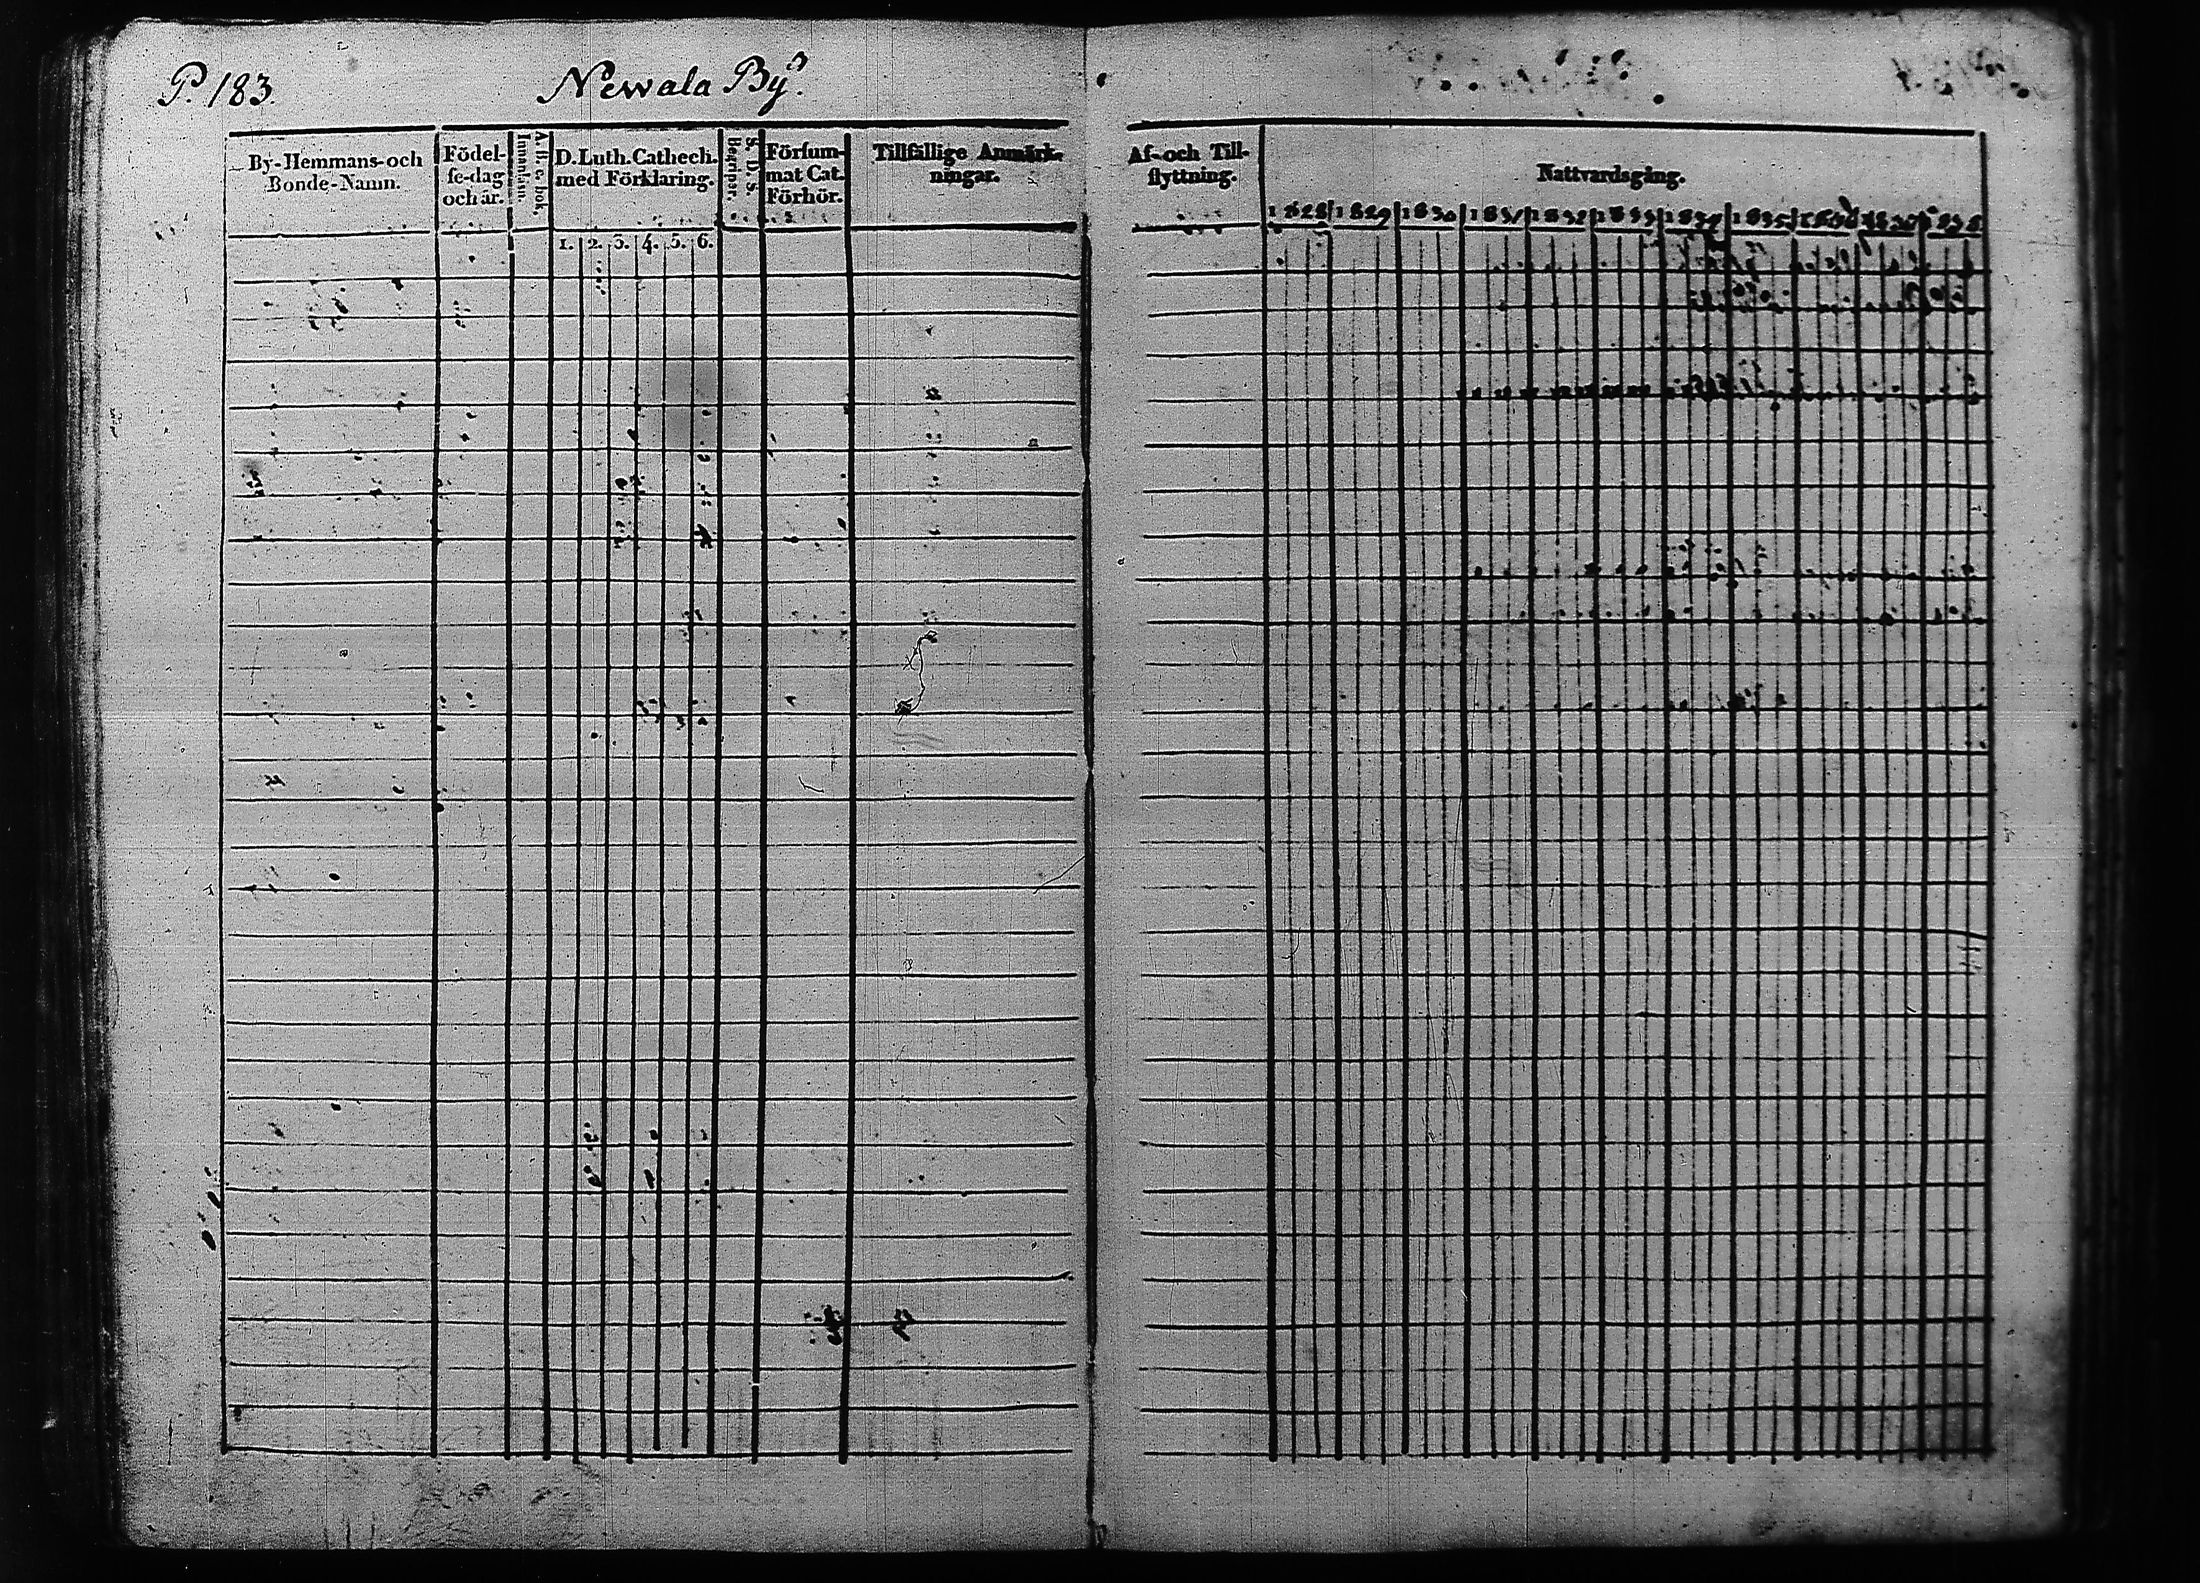 P. 183.
Newala By
By-Hemmans-och
Bonde-Namn.
Födel-
se-dag
och år.
A. B. c. bok,
Innanläsn.
D. Luth. Cathech.
med Förklaring.
S. D. S.
Begripar.
Försum-
mat Cat.
Förhör.
Tillfällige Anmärk-
ningar.
1. 2. 3. 4. 5. 6.
Af- och Till-
flyttning.
Nattvardsgång.
1828 1829 1830 1831 1832 1833 1834 1835 1836 1837 1838